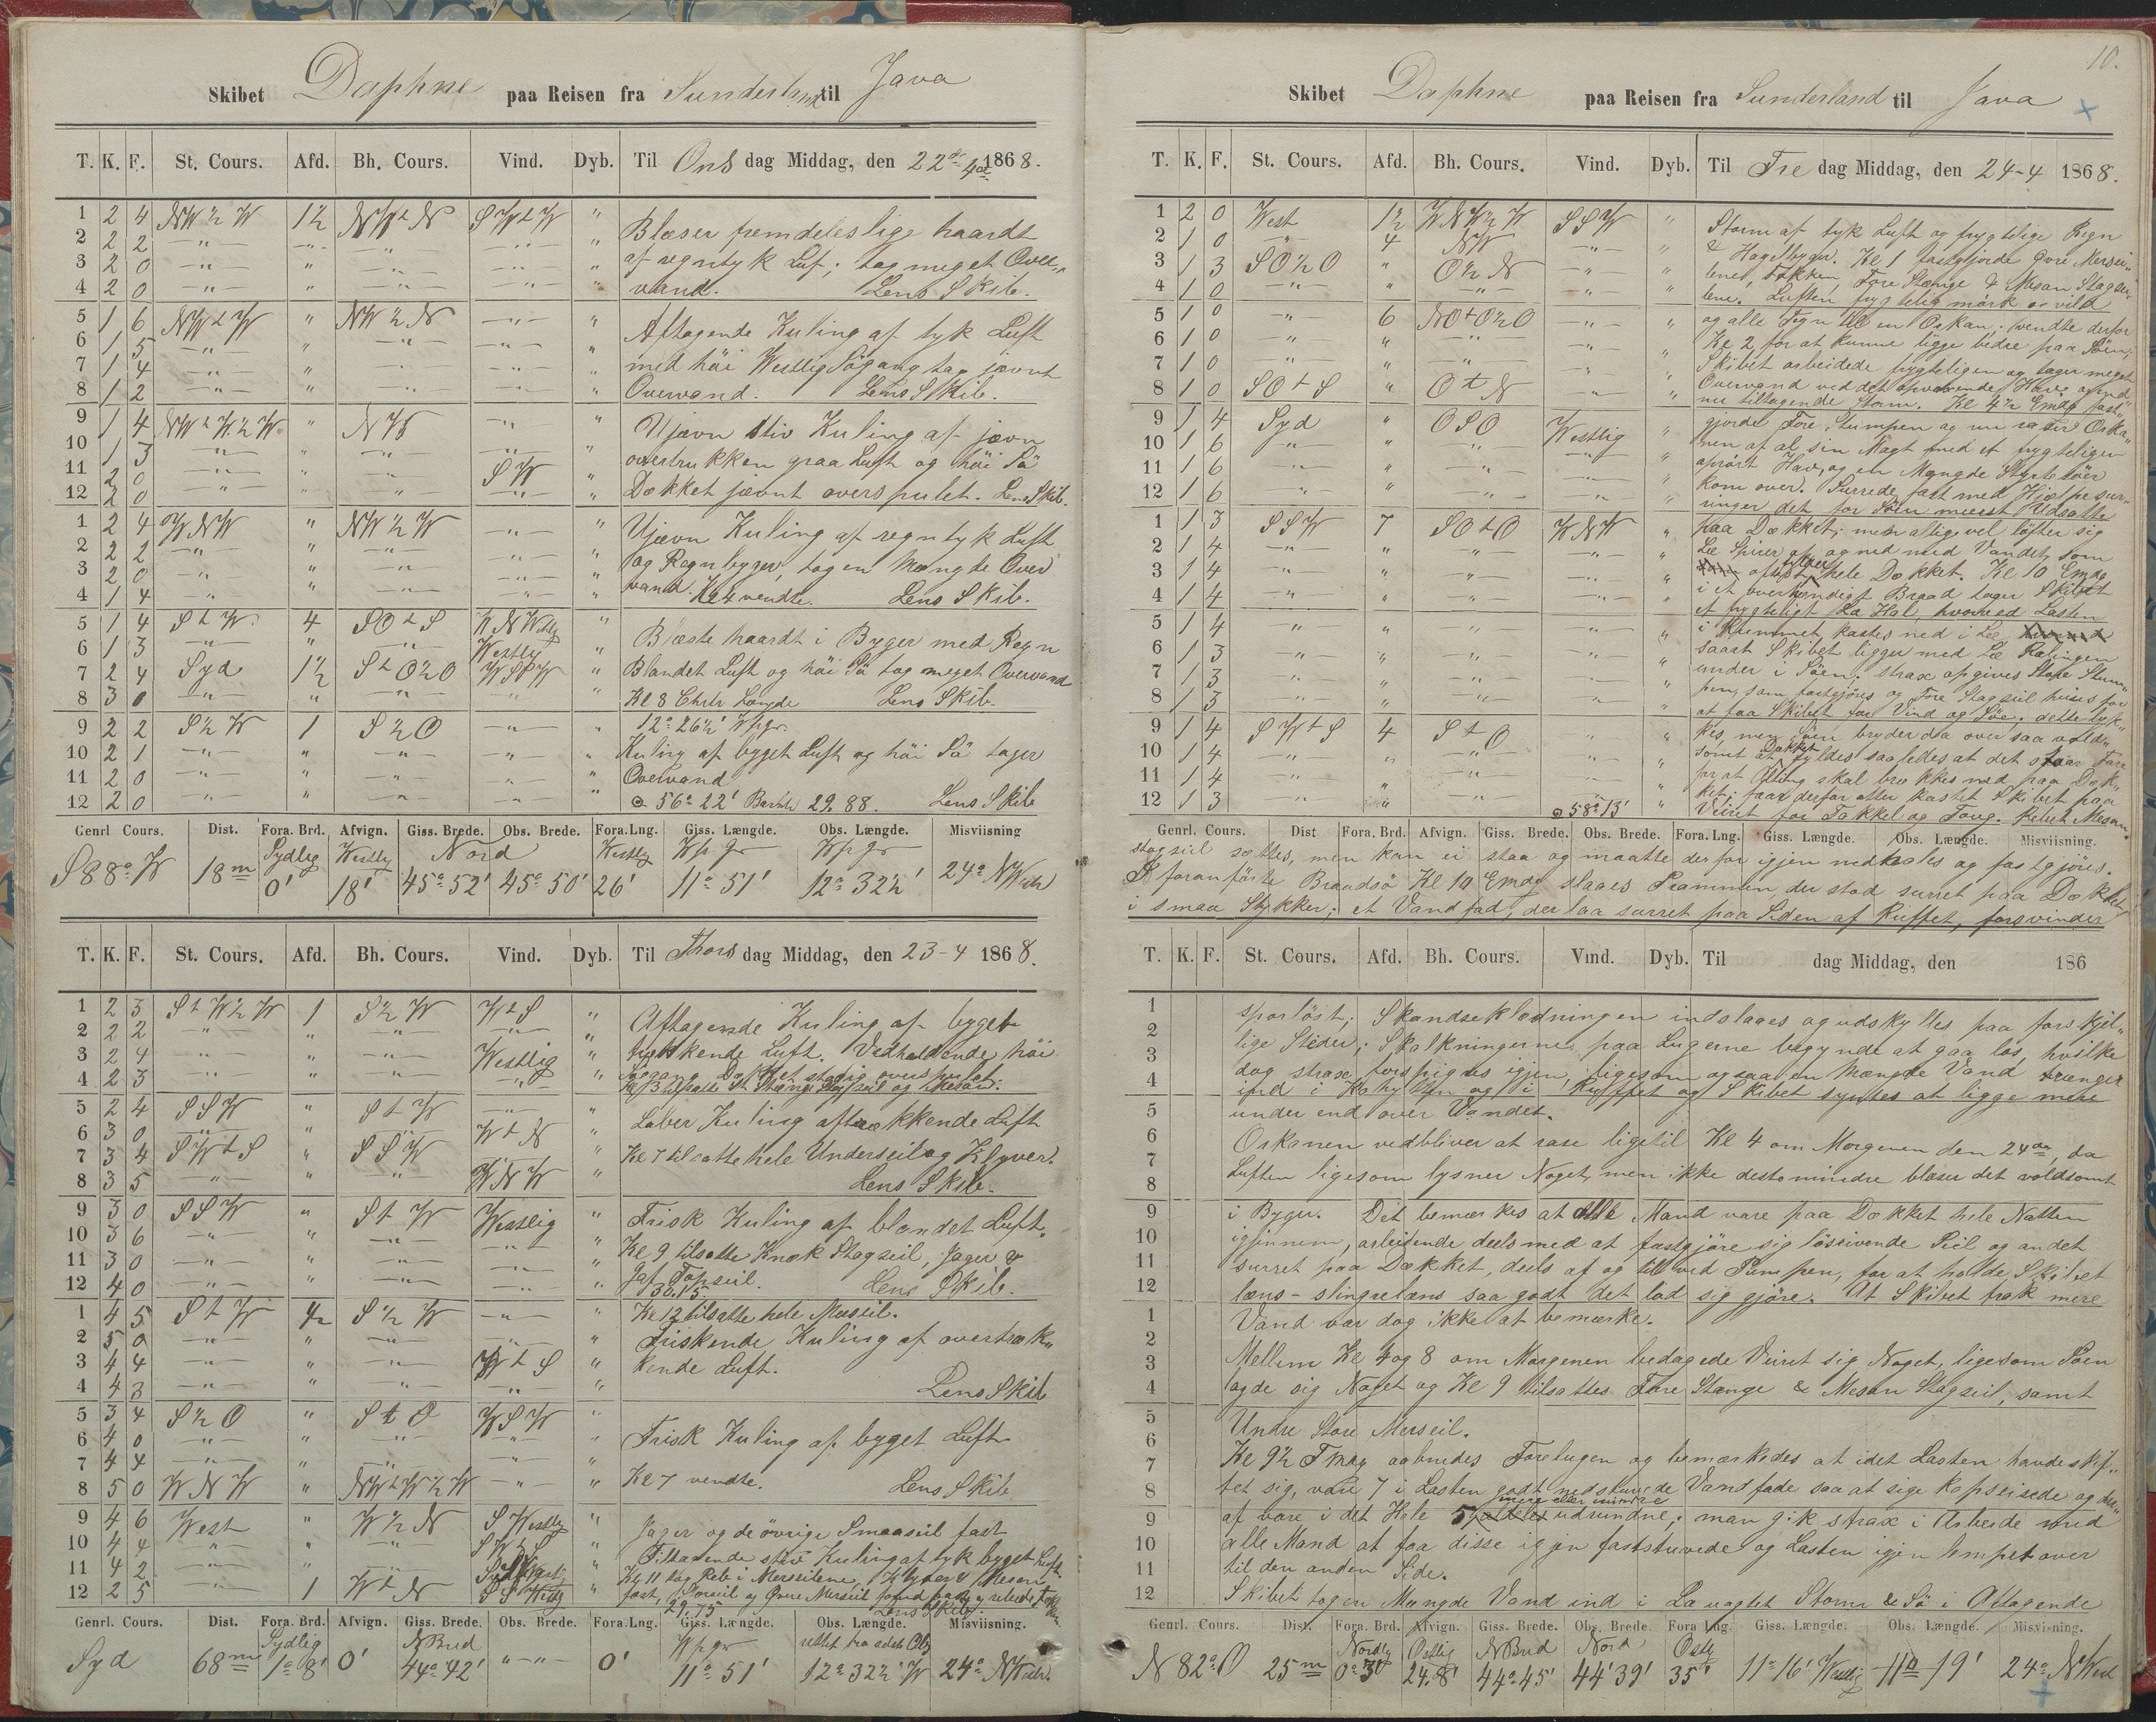 Skibet Daphne paa Reisen fra Sunderland til Java
T. K. F. St. Cours. Afd. Bh. Cours. Vind. Dyb. Til Ons dag Middag, den 22de 4de 1868.
1 2 4 NW½W 1½ NWtN SWtW "
2 2 2
3 2 0
4 2 0
Blæser fremdeles lige haardt
af regntyk Luf; tog meget Over-
vand. Lens Skib.
5 1 6 NWtW " NW½N
6 1 5
7 1 4
8 1 2
Aftagende Kuling af tyk Luft
med höi Westlig Sögang tog jævnt
Overvand. Lens Skib.
9 1 4 NWtW½W " NW
10 1 3
11 2 0 SW
12 2 0
Ujævn stiv Kuling af jævn
overtrukken graa Luft og höi Sö
Dækket jævnt overspulet. Lens Skib.
1 2 4 WNW " NW½W
2 2 2
3 2 0
4 1 4
Ujævn Kuling af regntyk Luft
og Regnbyger, tog en Mængde Over
vand. Kl 4 vendte. Lens Skib.
5 1 4 StW 4 SOtS WNWestlig
6 1 3 Westlig
7 2 4 Syd 1½ StO½O WSW
8 3 0
Blæste haardt i Byger med Regn
Blandet Luft og höi Sö tog meget Overvand
Kl 8 Chrtr Længde Lens Skib.
12° 26½' Wpgr.
9 2 2 S½W 1 S½O
10 2 1
11 2 0
12 2 0
Kuling af byget Luft og höi Sö tager
Overvand
56° 22' Barmtr 29.88. Lens Skib
Genrl Cours. Dist. Fora. Brd. Afvign. Giss. Brede. Obs. Brede. Fora.Lng. Giss. Længde. Obs. Længde. Misviisning
Sydlig Westlig Nord Westlig Wpgr Wpgr
S88°W 18m 0' 18' 45° 52' 45° 50' 26' 11° 51' 12° 32½' 24° NWestr
T. K. F. St. Cours. Afd. Bh. Cours. Vind. Dyb. Til Thors dag Middag, den 23-4 1868.
1 2 3 StW½W 1 S½W WtS
2 2 2
3 2 4 Westlig
4 2 3
Aftagende Kuling af byget
trækkende Luft. Vedholdende höi
Sögang Dækket stadig overspulet
5 2 4 SSW " StW
6 3 0 WtN
7 3 4 SWtS " SSW
8 3 5 WNW
Laber Kuling af trækkende Luft
Kl 7 tilsatte hele Underseil og Klyver.
Lens Skib.
9 3 0 SSW " StW Westlig
10 3 6
11 3 0
12 4 0
Frisk Kuling af blandet Luft.
Kl 9 tilsatte Knæk Stagseil, Jager &
Gaf Topseil. Lens Skib.
1 4 5 StW ½ S½W
2 5 0
3 4 4 WtS
4 4 3
Kl 12 tilsatte hele Messeil.
Friskende Kuling af overtræk-
kende Luft.
Lens Skib
5 3 4 S½O " StO WSW
6 4 0
7 4 4
8 5 0 WNW " NWtW½W
Frisk Kuling af byget Luft.
Kl 7 vendte. Lens Skib
9 4 6 West " W½N SWestlig
10 4 4
11 4 2
12 2 5 1 WtN
Jager og de övrige Smaaseil fast
Tiltagende stiv Kuling af tyk byget Luft.
29.75 Lens Skib.
Genrl. Cours. Dist. Fora. Brd. Afvign. Giss. Brede. Obs. Brede. Fora.Lng. Giss. Længde. Obs. Længde. Misviisning.
Sydlig NBred Wpgr
Syd 68m 1° 8' 0' 44° 42' 0' 11° 51' 12° 32½' W 24° NWestr
10.
Skibet Daphne paa Reisen fra Sunderland til Java
T. K. F. St. Cours. Afd. Bh. Cours. Vind. Dyb. Til Fre dag Middag, den 24-4 1868.
1 2 0 West 1½ WNW½W SSW
2 1 0 4 NW
3 1 3 SO½O " O½N
4 1 0
5 1 0 6 NOtO½O
6 1 0
7 1 0
8 1 0 SOtS " OtN
9 1 4 Syd " OSO Westlig
10 1 6
11 1 6
12 1 6
1 1 3 SSW 7 SOtO WNW
2 1 4
3 1 4
4 1 4
5 1 4
6 1 3
7 1 3
8 1 3
9 1 4 SWtS 4 StO
10 1 4
11 1 4
12 1 3 58° 13'
Storm af tyk Luft og frygtelige Regn
& Hagelbyger. Kl 1 fastgjorde övre Mersei-
lene, Fokken, Fore Stænge & Mesan Stagsei-
lene. Luften frygtelig mörk og vild
og alle Tegn til en Orkan; vendte derfor
Kl 2, for at kunne ligge bedre paa Söen;
Skibet arbeidede frygteligen og tager meget
Overvand ved det oprörende Hav, og end
nu tiltagende Storm. Kl 4½ Emdg fast-
gjorde Fore Stumpen og nu raser Orka-
nen af al sin Magt med et frygteligen
oprört Hav, og en Mængde Styrtesöer
kom over. Surrede fast med Hjælpesur-
ringer det for Söen meest Udsatte
paa Dækket; men alligevel löfter sig
Læ Spirer op og ned med Vandet, som
oftest fylder hele Dækket. Kl 10 Emdg
i et overhændigt Braad tager Skibet
et frygteligt Læ Hal, hvorved Lasten
i Rummet kastes ned i Læ
saaat Skibet ligger med Læ Rælingen
under i Söen; strax opgives Store Stum-
pen, som fastgjöres og Fore Stagseil hises for
at faa Skibet for Vind og Söe; dette lyk-
kes, men Söen bryder da over saa vold-
somt at Dækket fyldes saaledes at det staar Fare
for at Alting skal brækkes ned paa Dæk-
ket; faar derfor atter kastet Skibet paa
Veiret for Takkel og Toug. Rebet Mesan-
Genrl. Cours. Dist Fora. Brd. Afvign. Giss. Brede. Obs. Brede. Fora.Lng. Giss. Længde. Obs. Længde. Misviisning.
stagseil sættes, men kan ei staa og maatte derfor igjen nedhales og fastgjöres.
I foranförte Braadsö Kl 10 Emdg slaaes Prammen der stod surret paa Dækket
i smaa Stykker; et Vandfad, der laa surret paa Siden af Ruffet, forsvinder
T. K. F. St. Cours. Afd. Bh. Cours. Vind. Dyb. Til dag Middag, den 186
1 2 3 4 5 6 7 8 9 10 11 12
1 2 3 4 5 6 7 8 9 10 11 12
sporlöst; Skandseklædningen indslaaes og udskylles paa forskjel-
lige Steder; Skalkningerne paa Lugerne begynde at gaa lös, hvilke
dog strax forspigres igjen; ligesom ogsaa en Mængde Vand trænger
ind i Kahytten og i Ruffet og Skibet syntes at ligge mere
under end over Vandet.
Orkanen vedbliver at rase ligetil Kl 4 om Morgenen den 24de, da
Luften ligesom lysner Noget, men ikke destomindre blæser det voldsomt
i Byger. Det bemærkes at alle Mand vare paa Dækket hele Natten
igjennem, arbeidende deels med at fastgjöre sig lösrivende Seil og andet
surret paa Dækket, deels af og til ved Pumpen, for at holde Skibet
læns - slingrelæns saa godt det lod sig gjöre. At Skibet træk mere
Vand var dog ikke at bemærke.
Mellem Kl 4 og 8 om Morgenen bedagede Veiret sig Noget, ligesom Söen
lagde sig Noget og Kl 9 tilsattes Fore Stænge & Mesan Stagseil, samt
Undre Store Merseil.
Kl 9½ Fmdg aabnedes Forelugen og bemærkedes at idet Lasten havde skif-
tet sig, vare 7 i Lasten godt nedstuvede Vandfade saa at sige kapseisede og der-
af vare i det Hele 5 mere eller mindre udrundne; man gik strax i Arbeide med
alle Mand at faa disse igjen faststuvede og Lasten igjen lempet over
til den anden Side.
Skibet tog en Mængde Vand ind i Læ vagtet Storm & Sö i Aftagende
Genrl. Cours. Dist. Fora. Brd. Afvign. Giss. Brede. Obs. Brede. Fora Lng. Giss. Længde. Obs. Længde. Misviisning.
Nordlig Östlig NBred Nord Östlig
N82°O 25m 0° 3' 24.8' 44° 45' 44° 39' 35' 11° 16' Westlig 11° 19' 24° NWest